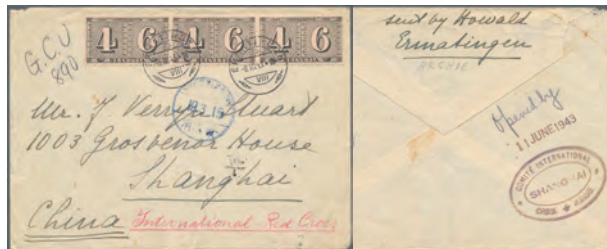 G.C.U
890
4 6 4 6 4 6
VIII VIII
Mr. J Verryn Stuart
1003 Grosvenor House
Shanghai
China International Red Cross
sent by Howald
Ermatingen
Opened by
11 JUNE 1943
COMITÉ INTERNATIONAL
SHANGHAI
CROIX ROUGE